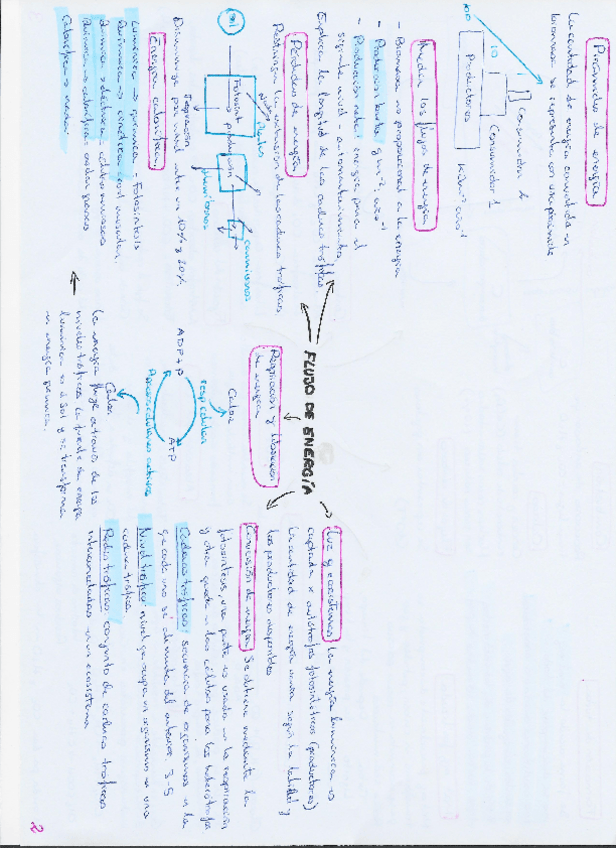 FLUJO DE ENERGÍA
Pirámides de energía
La cantidad de energía convertida en
biomasa se representa con una pirámide
100
10
1
Productores
Consumidor 1
Consumidor 2
Medir los flujos de energía
- Biomasa no proporcional a la energía
- Producción bruta
- Producción neta: energía para el
siguiente nivel
Explica la longitud de las cadenas tróficas.
Pérdidas de energía
Restringen la extensión de las cadenas tróficas
Sol
producción
respiración
Disminuye por nivel entre un 10% y 20%
Energía calorífica
Lumínica → química - Fotosíntesis
Química → cinética: cont. muscular
Química → eléctrica: células nerviosas
Química → calorífica
Respiración y liberación
de energía
Calor
respiración
ADP + P
ATP
Calor
La energía fluye a través de los
niveles tróficos. La fuente de energía
lumínica es el sol y se transforma
en energía química.
Luz y ecosistemas: La energía lumínica es
captada x autótrofos fotosintéticos (productores)
La cantidad de energía varía según la
los productores disponibles
Conversión de energía: Se obtiene mediante la
fotosíntesis, una parte es usada en la respiración
y otra queda en las células para los heterótrofos
Cadenas tróficas: secuencia de organismos en la
que cada uno se alimenta del anterior. 3-5
Nivel trófico: nivel que ocupa un organismo en una
cadena trófica
Redes tróficas: conjunto de cadenas tróficas
interrelacionadas en un ecosistema
2